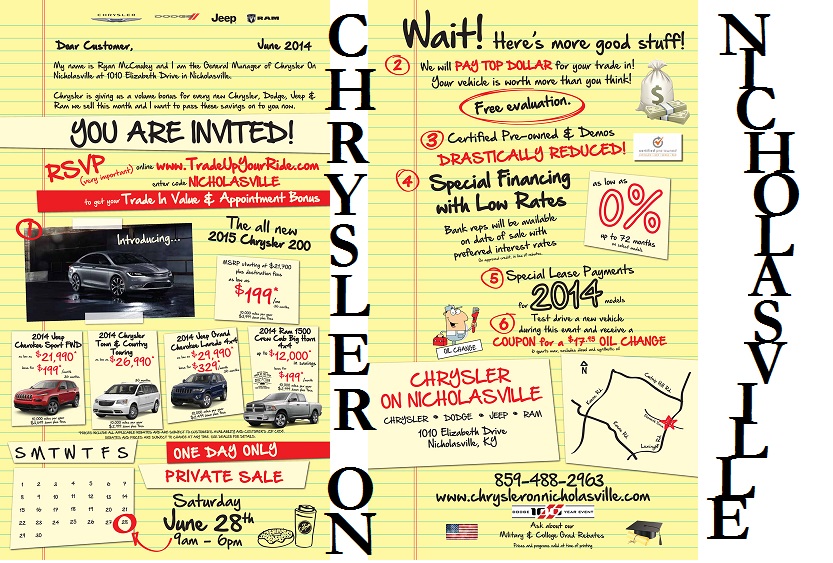 CHRYSLER
DODGE
Jeep
RAM
Dear Customer,
June 2014
My name is Ryan McCauley and I am the General Manager of Chrysler On
Nicholasville at 1010 Elizabeth Drive in Nicholasville.
Chrysler is giving us a volume bonus for every new Chrysler, Dodge, Jeep &
Ram we sell this month and I want to pass these savings on to you now.
YOU ARE INVITED!
RSVP
(very important)
online www.TradeUpYourRide.com
enter code NICHOLASVILLE
to get your Trade In Value & Appointment Bonus
1
Introducing...
The all new
2015 Chrysler 200
MSRP starting at $21,700
plus destination fees
as low as
$199*
/mo
10,000 miles per year
2014 Jeep
Cherokee Sport FWD
as low as $21,990*
lease for $199*
10,000 miles per year
2014 Chrysler
Town & Country
Touring
as low as $26,990*
2014 Jeep Grand
Cherokee Laredo 4x4
as low as $29,990*
lease for $329*
10,000 miles per year
2014 Ram 1500
Crew Cab Big Horn
4x4
up to $12,000*
in savings
lease for $199*
10,000 miles per year
S M T W T F S
1 2 3 4 5 6 7
8 9 10 11 12 13 14
15 16 17 18 19 20 21
22 23 24 25 26 27 28
29 30
ONE DAY ONLY
PRIVATE SALE
Saturday
June 28th
9am - 6pm
CHRYSLER ON
Wait! Here's more good stuff!
2
We will PAY TOP DOLLAR for your trade in!
Your vehicle is worth more than you think!
Free evaluation.
$
3
Certified Pre-owned & Demos
DRASTICALLY REDUCED!
certified pre-owned
4
Special Financing
with Low Rates
Bank reps will be available
on date of sale with
preferred interest rates
On approved credit, in lieu of rebates.
as low as
0%
up to 72 months
on select models
5
Special Lease Payments
for 2014 models
6
Test drive a new vehicle
during this event and receive a
COUPON for a $17.95 OIL CHANGE
OIL CHANGE
CHRYSLER
ON NICHOLASVILLE
CHRYSLER • DODGE • JEEP • RAM
1010 Elizabeth Drive
Nicholasville, KY
N
859-488-2963
www.chrysleronnicholasville.com
DODGE 100 YEAR EVENT
Ask about our
Military & College Grad Rebates
Prices and programs valid at time of printing
NICHOLASVILLE